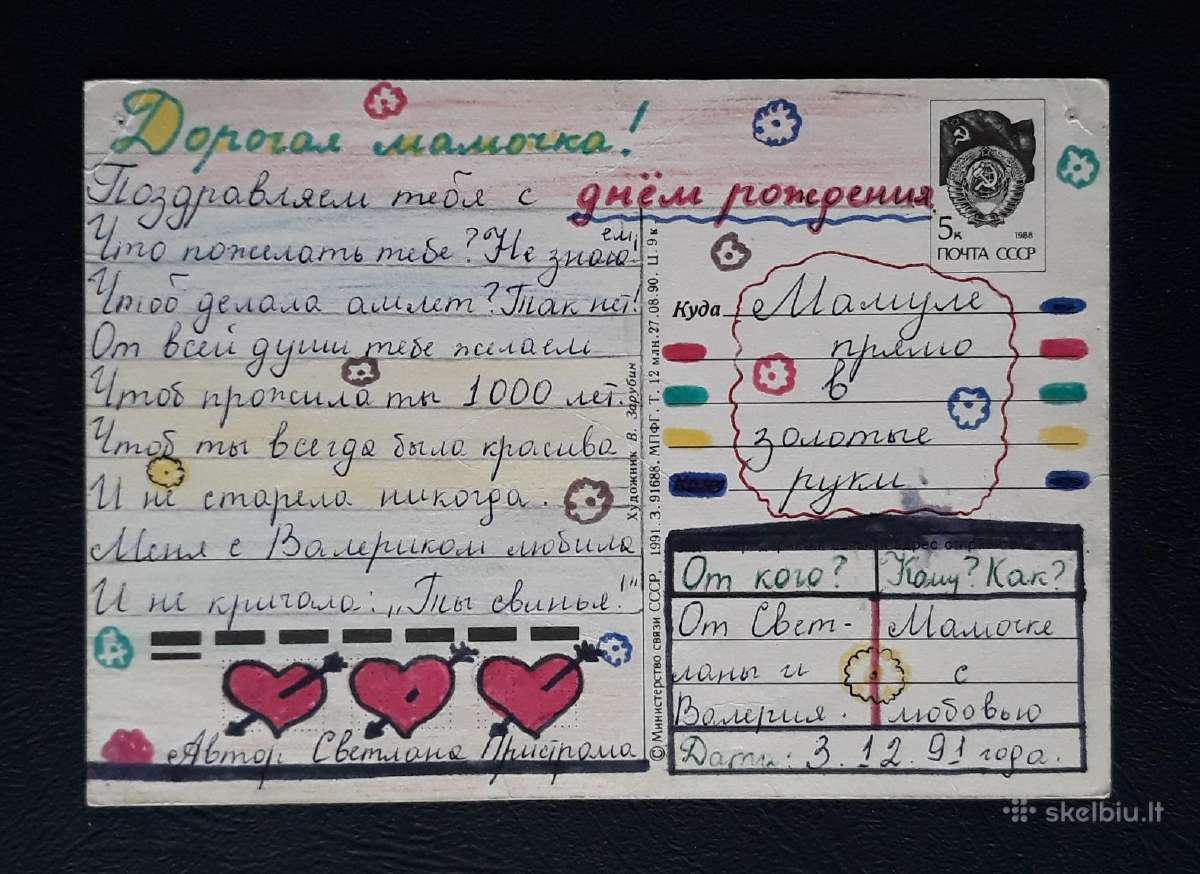 Дорогая мамочка!
Поздравляем тебя с днём рождения.
Что пожелать тебе? Не знаю!
ем
Чтоб делала амлет? Так нет!
От всей души тебе желаем
Чтоб прожила ты 1000 лет.
Чтоб ты всегда была красива
И не старела никогда.
Меня с Валериком любила
И не кричала: „Ты свинья!"
Автор: Светлана Пристрома
© Министерство связи СССР. 1991. З. 91688. МПФГ. Т. 12 млн. 27.08.90. Ц. 9 к
Художник В. Зарубин
5к 1988
ПОЧТА СССР
Куда Мамуле
прямо
в
золотые
Кому руки
От кого? Кому? Как?
От Свет- Мамочке
ланы и с
Валерия. любовью
Дата: 3. 12. 91 года.
skelbiu.lt